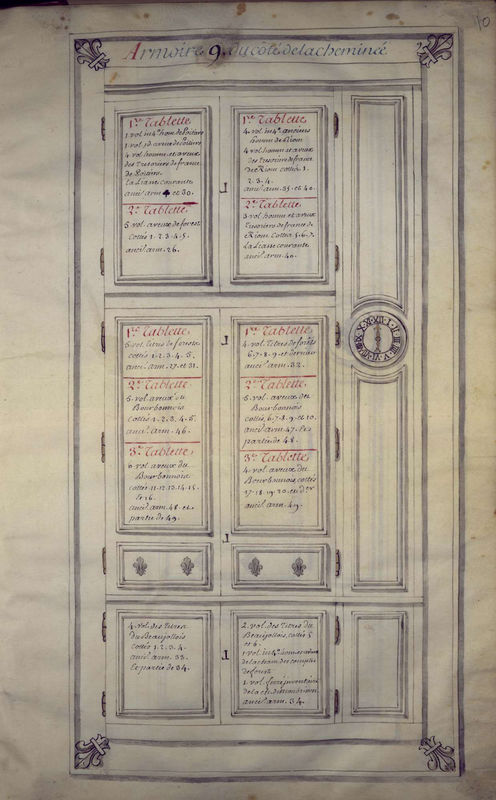 10
Armoire 9. du coté de la cheminée
1re Tablette
1. vol. in 4o. hom. de Poitiers
1. vol. id. aveux de Poitiers
4. vol. homm. et aveux
des Tresoriers de france
de Poitiers.
La Liasse courante
anc. arm. et 30.
2e Tablette
5. vol. aveux de forest
cottés 1. 2. 3. 4. 5.
anc. arm. 26.
1re Tablette
4. vol. in 4o. anciens
homm. de Riom
4. vol. homm. et aveux
des Tresoriers de france
de Riom cottés 1.
2. 3. 4.
anc. arm. 35. et 40.
2e Tablette
3. vol. homm. et aveux
Tresoriers de france de
Riom. Cottés 5. 6. 7.
La Liasse courante
anc. arm. 40.
1re Tablette
5. vol. titres de forests
cottés 1. 2. 3. 4. 5.
anc. arm. 27. et 31.
2e Tablette
5. vol. aveux du
Bourbonnois
Cottés 1. 2. 3. 4. 5.
anc. arm. 46.
3e Tablette
6. vol. aveux du
Bourbonnois
cottés 11. 12. 13. 14. 15.
et 16.
anc. arm. 48. et
partie de 49.
1re Tablette
4. vol. Titres de forests
6. 7. 8. 9. et dernier
anc. arm. 32.
2e Tablette
5. vol. aveux du
Bourbonnois
cottés 6. 7. 8. 9. et 10.
anc. arm. 47. et
partie de 48.
3e Tablette
4. vol. aveux du
Bourbonnois, cottés
17. 18. 19. 20. et der
anc. arm. 49.
I II III IIII V VI VII VIII IX X XI XII
4. vol. des Titres
du Beaujollois
cottés 1. 2. 3. 4.
anc. arm. 33.
et partie de 34.
2. vol. des Titres du
Beaujollois, cottés 5
et 6.
1. vol. in 4o. hom.
de la cham. des comptes
de forest
1. vol.
de la
anc. arm. 34.